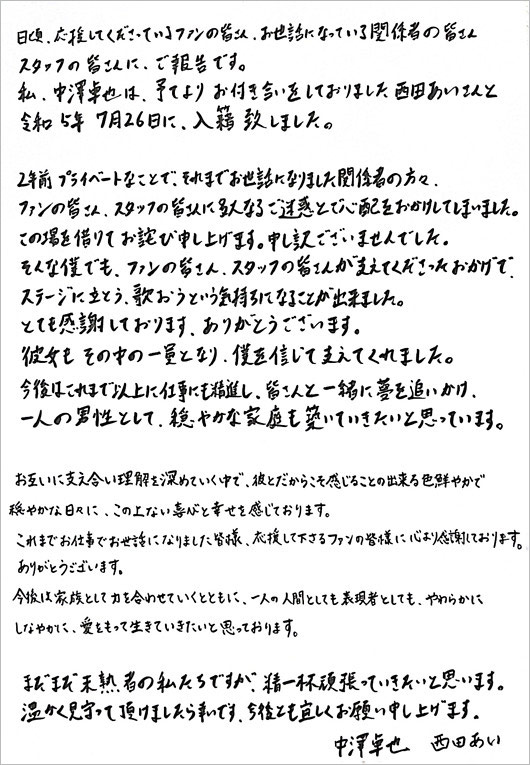 日頃、応援してくださっているファンの皆さん、お世話になっている関係者の皆さん
スタッフの皆さんに、ご報告です。
私、中澤卓也は、予てよりお付き合いをしておりました西田あいさんと
令和5年7月26日に、入籍致しました。
2年前プライベートなことで、それまでお世話になりました関係者の方々、
ファンの皆さん、スタッフの皆さんに多大なるご迷惑とご心配をおかけしてしまいました。
この場を借りてお詫び申し上げます。申し訳ございませんでした。
そんな僕でも、ファンの皆さん、スタッフの皆さんが支えてくださったおかげで、
ステージに立とう、歌おうという気持ちになることが出来ました。
とても感謝しております、ありがとうございます。
彼女もその中の一員となり、僕を信じて支えてくれました。
今後はこれまで以上に仕事にも精進し、皆さんと一緒に夢を追いかけ、
一人の男性として、穏やかな家庭も築いていきたいと思っています。
お互いに支え合い理解を深めていく中で、彼とだからこそ感じることの出来る色鮮やかで
穏やかな日々に、この上ない喜びと幸せを感じております。
これまでお仕事でお世話になりました皆様、応援して下さるファンの皆様に心より感謝しております。
ありがとうございます。
今後は家族として力を合わせていくとともに、一人の人間としても表現者としても、やわらかに
しなやかに、愛をもって生きていきたいと思っております。
まだまだ未熟者の私たちですが、精一杯頑張っていきたいと思います。
温かく見守って頂けましたら幸いです、今後とも宜しくお願い申し上げます。
中澤卓也 西田あい